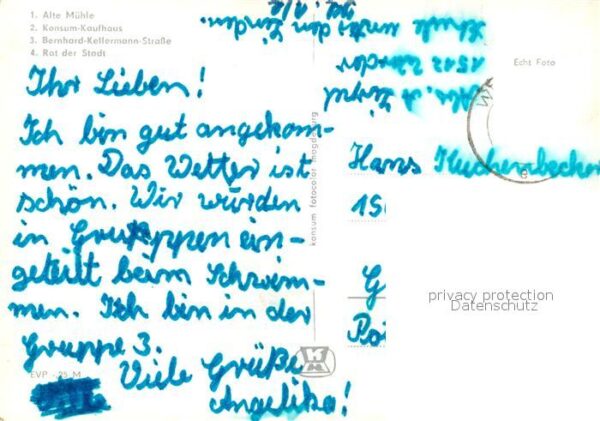 1. Alte Mühle
2. Konsum-Kaufhaus
3. Bernhard-Kellermann-Straße
4. Rat der Stadt
Ihr Lieben!
Ich bin gut angekom-
men. Das Wetter ist
schön. Wir wurden
in Gruppen ein-
geteilt beim Schwim-
men. Ich bin in der
Gruppe 3.
Viele Grüße
Angelika!
EVP -,25 M
konsum fotocolor magdeburg
Echt Foto
Schule
unter den Linden
Hans Kuchenbecker
15
G
privacy protection
Datenschutz